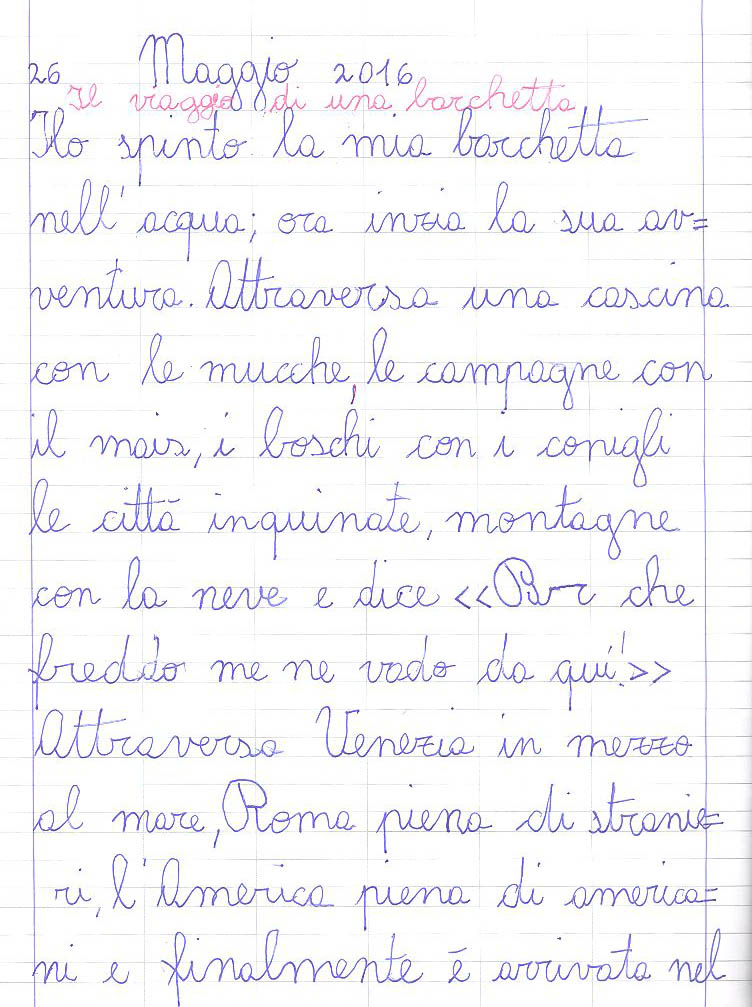 26 Maggio 2016
Il viaggio di una barchetta
Ho spinto la mia barchetta
nell'acqua; ora inzia la sua av=
ventura. Attraversa una cascina
con le mucche, le campagne con
il mais, i boschi con i conigli
le città inquinate, montagne
con la neve e dice <<Brr che
freddo me ne vado da qui!>>
Attraversa Venezia in mezzo
al mare, Roma piena di stranie=
ri, l'America piena di america=
ni e finalmente è arrivata nel